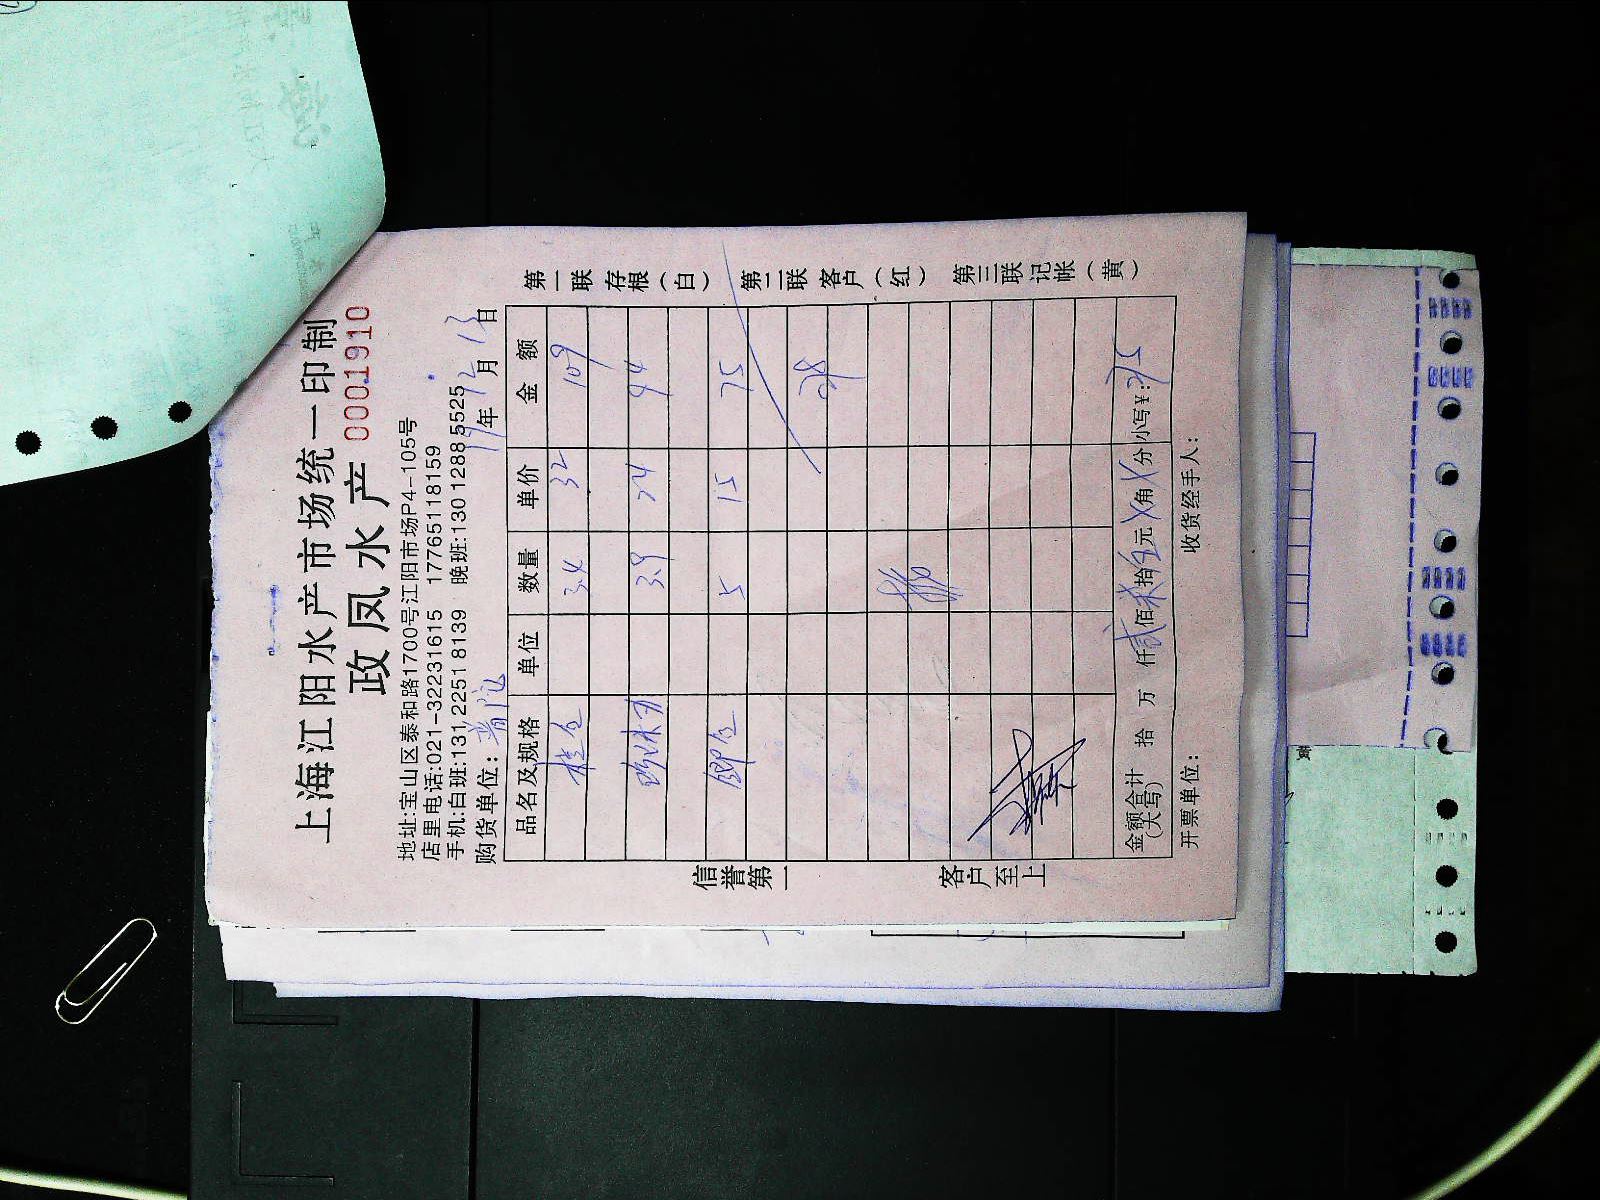 上海江阳水产市场统一印制
政凤水产 0001910
地址:宝山区泰和路1700号江阳市场P4-105号
店里电话:021-32231615 17765118159
手机:白班:131 2251 8139 晚班:130 1288 5525
购货单位: 19年12月13日
品名及规格 单位 数量 单价 金额
桂鱼 3.4 32 109
3.9 24 94
鲫鱼 5 15 75
信誉第一 客户至上
第一联 存根(白) 第二联 客户(红) 第三联 记帐(黄)
金额合计(大写) 拾 万 仟贰佰柒拾 元 角 分 小写¥:
开票单位: 收货经手人: